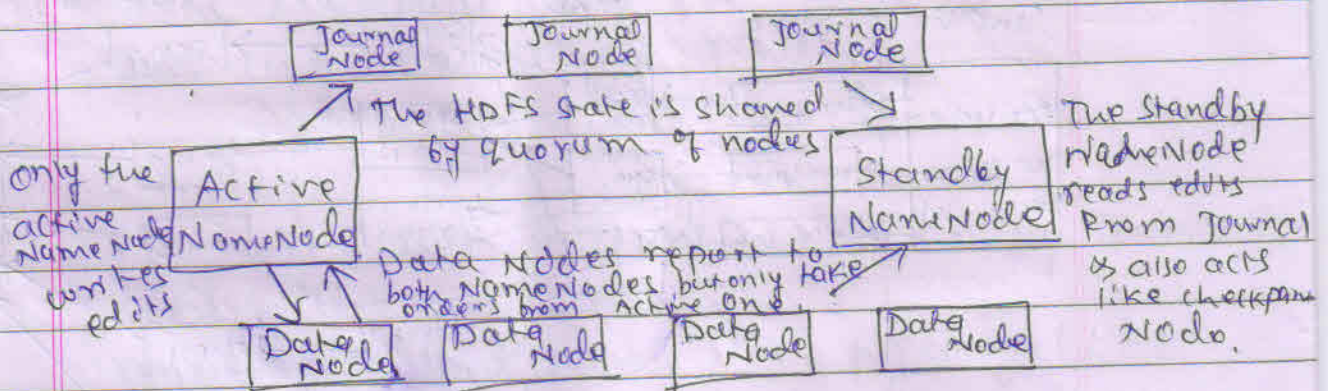 Journal
Node
Journal
Node
Journal
Node
The HDFS State is Shared
by quorum of nodes
only the
active
Name Node
writes
edits
Active
NameNode
Standby
NameNode
The Standby
NameNode
reads edits
From Journal
& also acts
like checkpoint
Node.
Data Nodes report to
both NameNodes but only take
orders from Active One
Data
Node
Data
Node
Data
Node
Data
Node